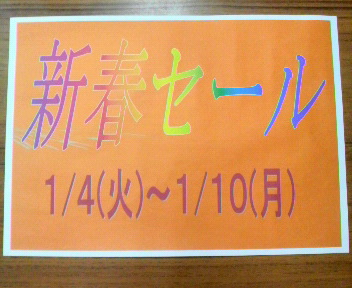 新春セール
1/4(火)～1/10(月)